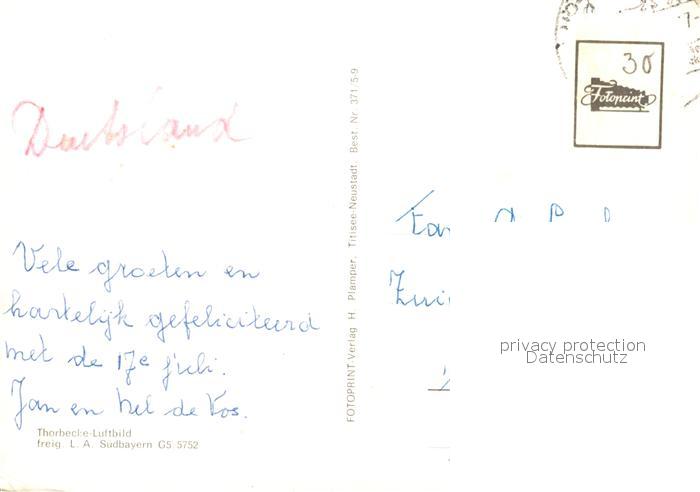 30
Fotoprint
Duitsland
Vele groeten en
hartelijk gefeliciteerd
met de 17e juli.
Jan en Nel de Vos.
Thorbecke-Luftbild
freig. L. A. Südbayern G5 5752
FOTOPRINT-Verlag H. Plamper, Titisee-Neustadt. Best. Nr. 371/5-9
Fam
Zui
privacy protection
Datenschutz